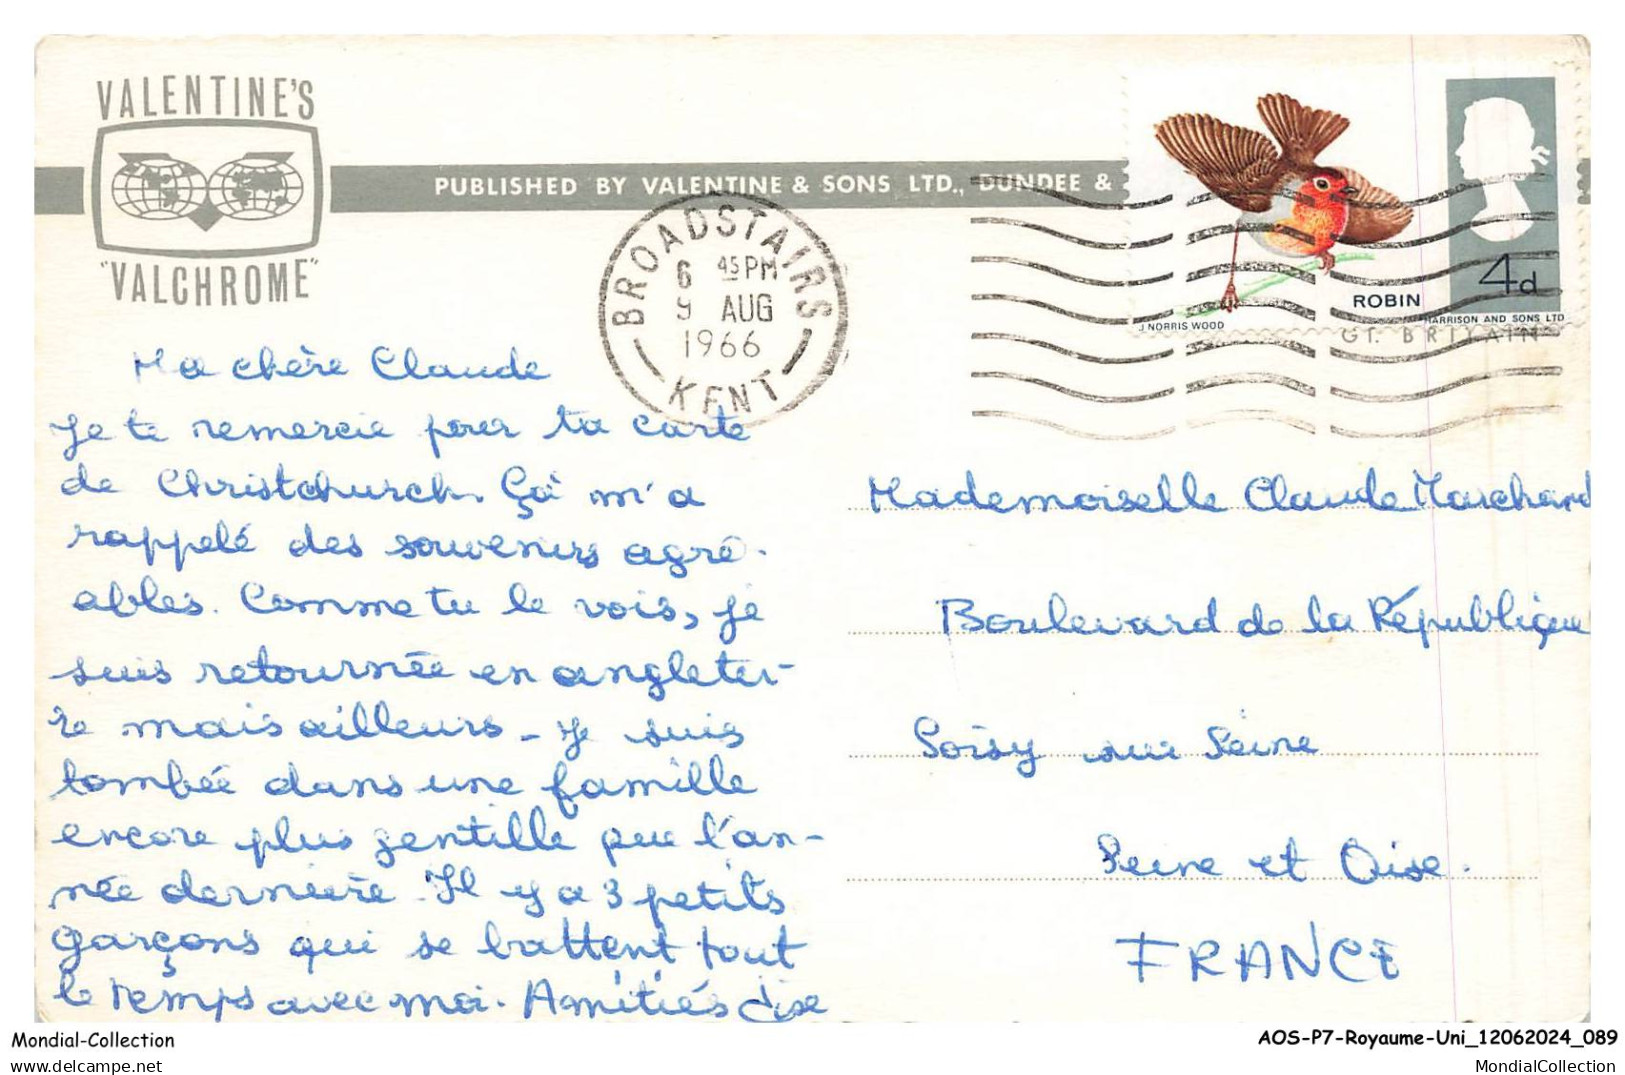 VALENTINE'S
"VALCHROME"
PUBLISHED BY VALENTINE & SONS LTD., DUNDEE &
BROADSTAIRS
6 45 PM
9 AUG
1966
KENT
ROBIN
4d
J NORRIS WOOD
HARRISON AND SONS LTD
GT. BRITAIN
Ma chère Claude
Je te remercie pour ta carte
de Christchurch. Ça m'a
rappelé des souvenirs agré-
ables. Comme tu le vois, je
suis retournée en angleter-
re mais ailleurs - Je suis
tombée dans une famille
encore plus gentille que l'an-
née dernière. Il y a 3 petits
garçons qui se battent tout
le temps avec moi. Amitiés Lise
Mademoiselle Claude Marchand
Boulevard de la République
Soisy sur Seine
Seine et Oise.
FRANCE
Mondial-Collection
AOS-P7-Royaume-Uni_12062024_089
www.delcampe.net
MondialCollection